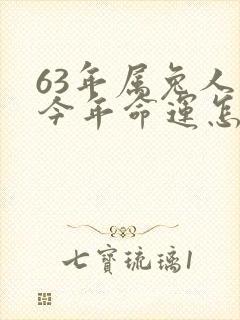 63年属兔人
今年命运怎
七寶琉璃1